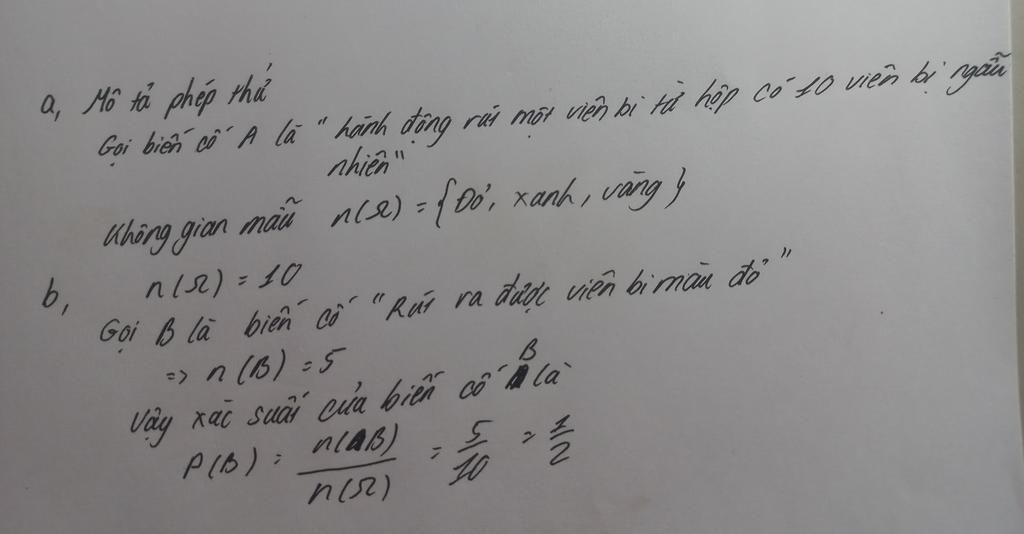 a, Mô tả phép thử
Gọi biến cố A là "hành động rút một viên bi từ hộp có 10 viên bi ngẫu
nhiên"
Không gian mẫu n(Ω) = {Đỏ, xanh, vàng}
n(Ω) = 10
b,
Gọi B là biến cố "Rút ra được viên bi màu đỏ"
=> n(B) = 5
Vậy xác suất của biến cố B là
P(B) = n(B) / n(Ω) = 5/10 = 1/2